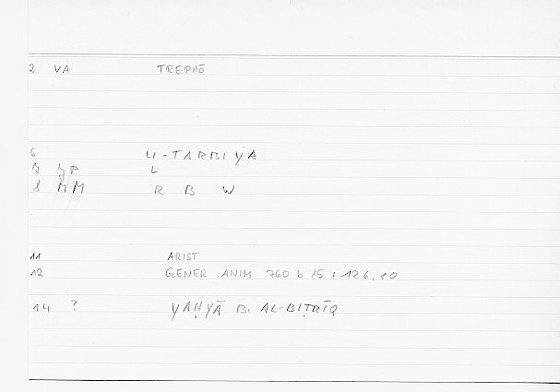 2 VA TREPHŌ
6 LI-TARBIYA
L
8 MM R B W
11 ARIST
12 GENER ANIM 760 b 15 : 126.10
14 ? YAḤYĀ B. AL-BIṬRĪQ